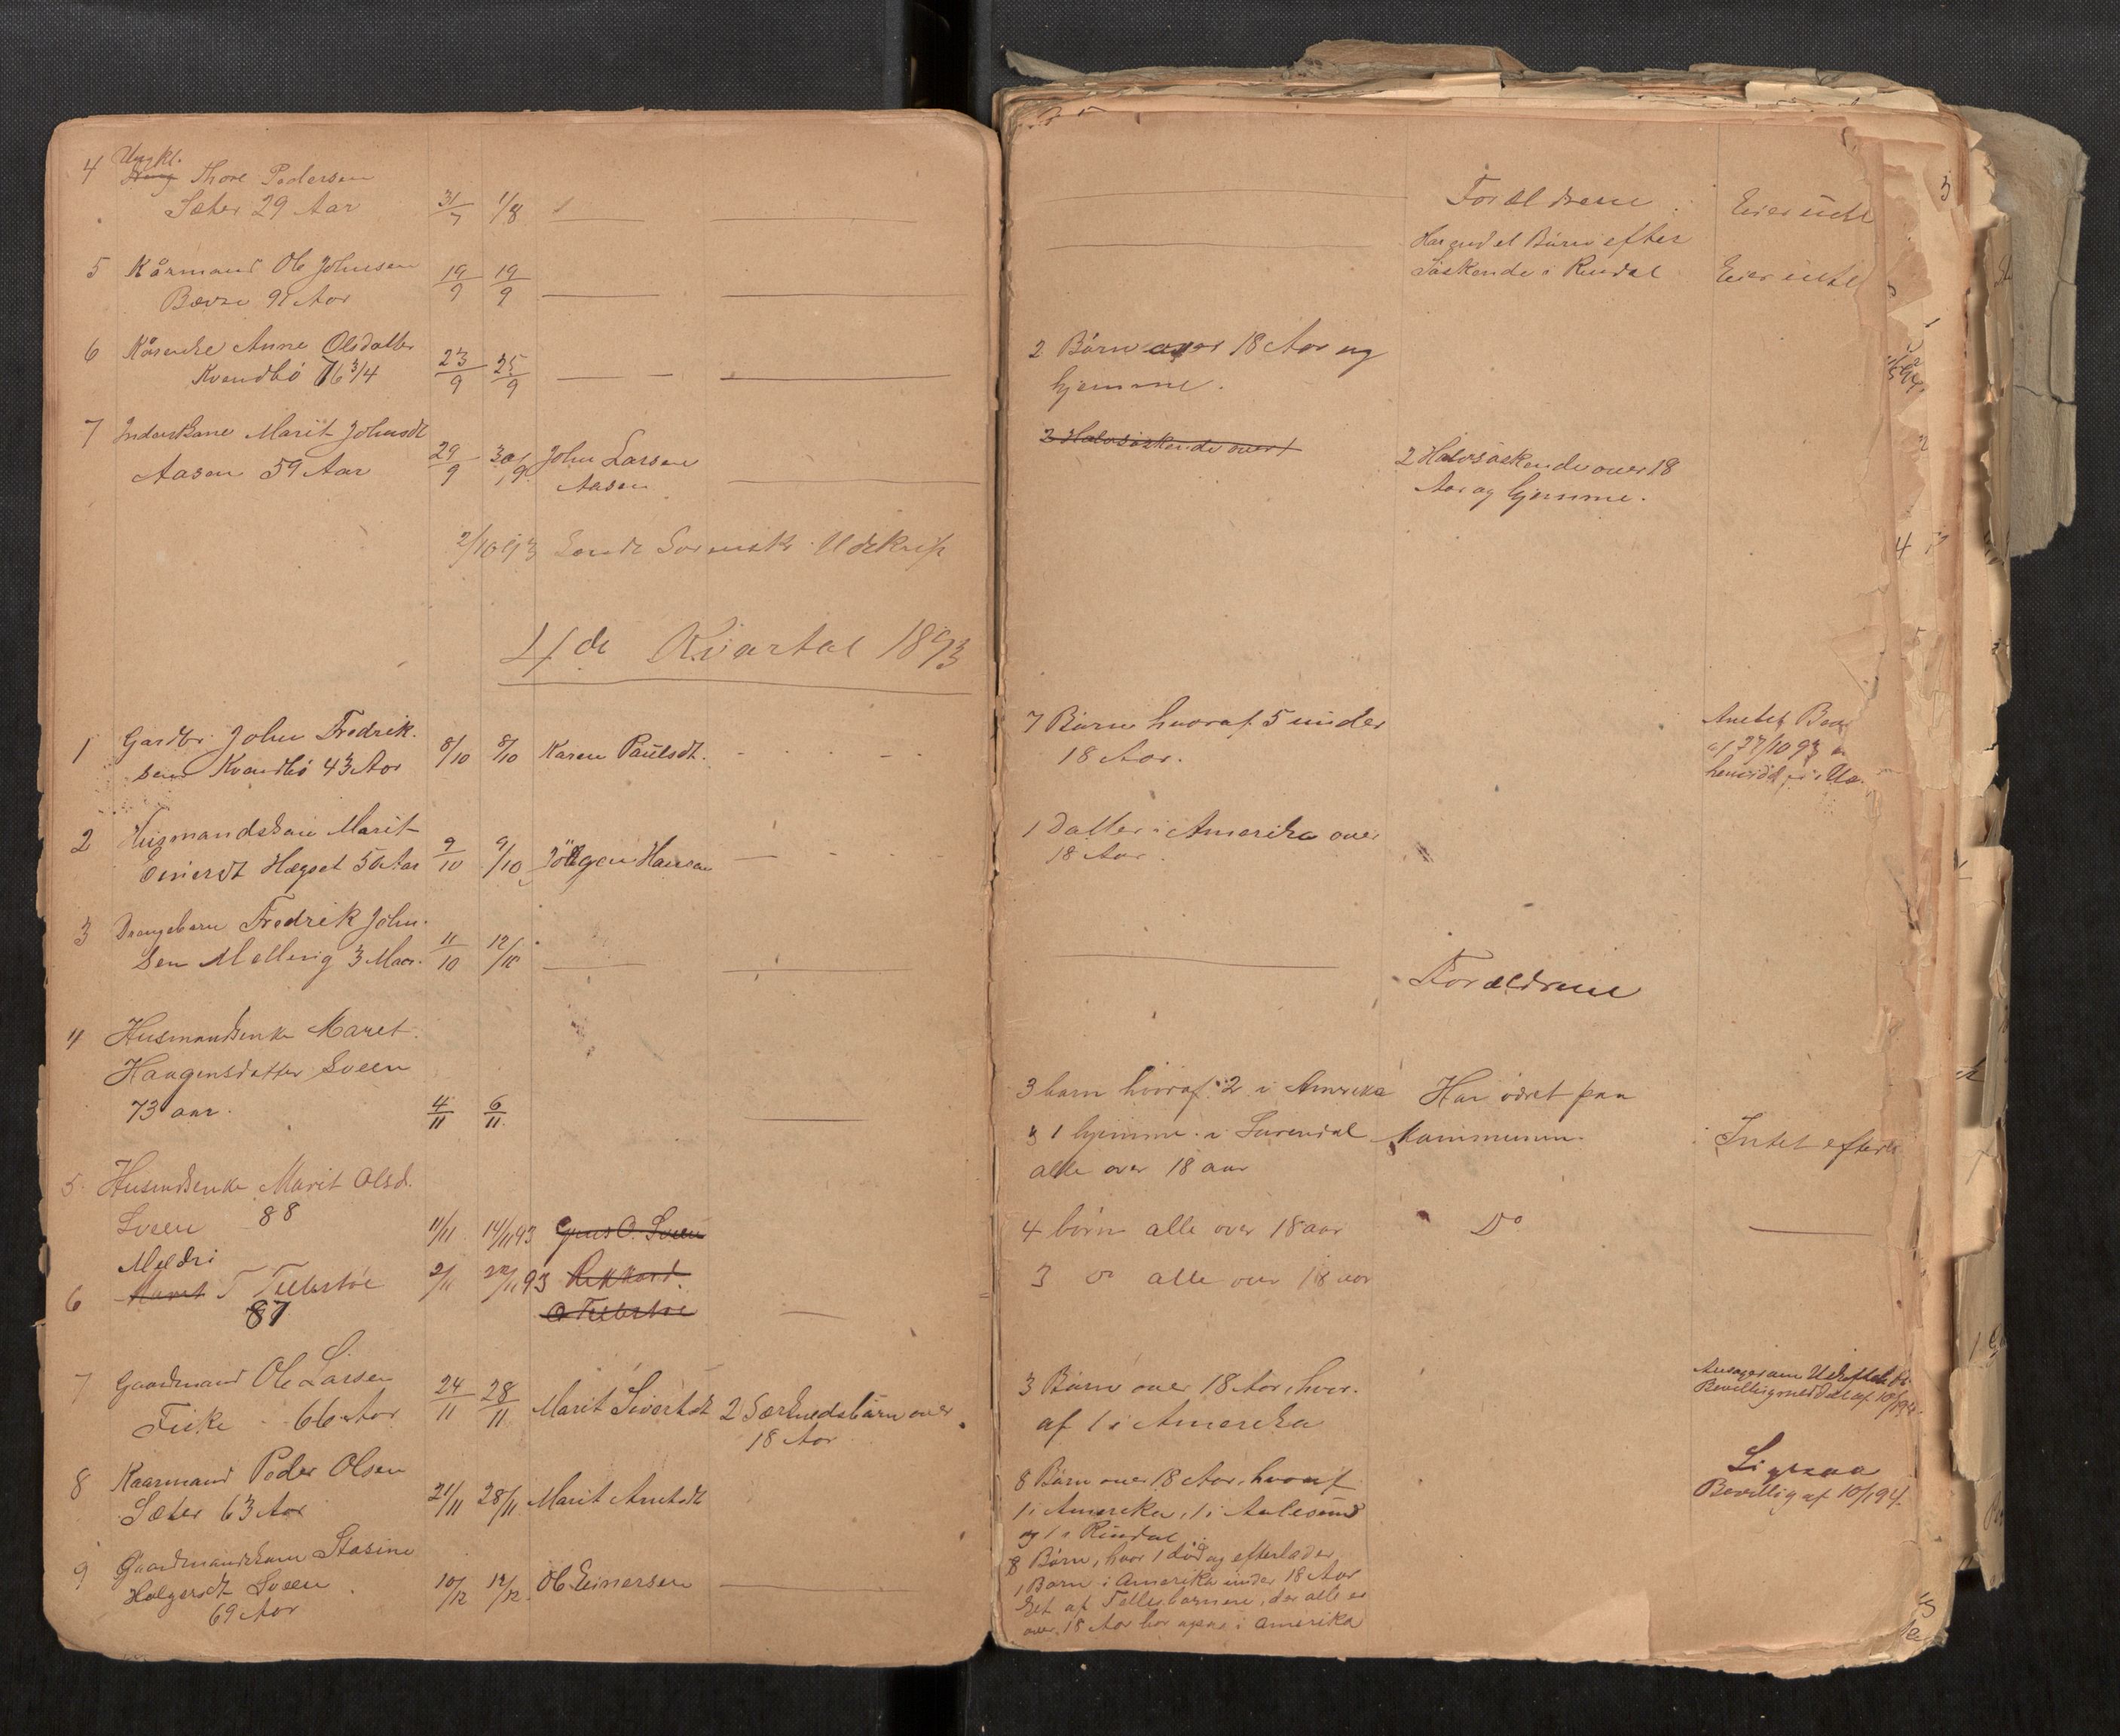 4 Ungkl.
Thore Pedersen
Sæter 29 Aar 31/7 1/8
Forældrene Eier intet
5 Kårmand Ole Johnsen
Bævre 91 Aar 19/9 19/9
Har endel Børn efter
Søskende i Rindal Eier intet
6 Kårenke Anne Olsdatter
Kvendbø 76 3/4 23/9 25/9
2 Børn over 18 Aar og
hjemme.
7 Marit Johnsdt
Aasen 59 Aar 29/9 30/9 John Larsen
Aasen
2 Halvsøskende over 1
2 Halvsøskende over 18
Aar og hjemme.
2/10 93 Sendt Sorensk. Udskrift
4de Kvartal 1893
1 Gardbr. John Fredrik-
sen Kvendbø 43 Aar 8/10 8/10 Karen Paulsdt.
7 Børn hvoraf 5 under
18 Aar.
2 Husmandskone Marit
Einersdt Hægset 50 Aar 9/10 9/10 Hansen
1 Datter i Amerika over
18 Aar.
3 Drengebarn Fredrik John-
sen Mellevig 3 Maan. 11/10 12/10
Forældrene
4 Husmandsenke Maret
Haagensdatter Sveen
73 aar. 4/11 6/11
3 barn hvoraf 2 i Amerika
1 hjemme i Surendal
alle over 18 aar
Har været paa
Kommunen.
Intet efterl
5 Husmdsenke Marit Olsd.
Sveen 88 11/11 14/11 93 O. Sveen
4 børn alle over 18 aar Do
6 Meldri
Maret T Tellestøe
87 2/11 93 Rikkard
O Tellestøe
3 do alle over 18 aar
7 Gaardmand Ole Larsen
Fiske 66 Aar 24/11 28/11 Marit Sivertsdt 2 Særkuldsbørn over
18 Aar
3 Børn over 18 Aar, hvor-
af 1 i Amerika
8 Kaarmand Peder Olsen
Sæter 63 Aar 21/11 28/11 Marit Arntsdt
8 Børn over 18 Aar, hvoraf
1 i Amerika, 1 i Aalesund
og 1 i Rindal
Ligesaa
Bevillig af 10/1 94.
9 Gaardmandskone Stasine
Holgersdt Sveen
69 Aar 10/12 12/12 Ole Einersen
8 Børn, hvor 1 død og efterlader
1 Barn i Amerika under 18 Aar
af Fellesbarnene, der alle er
over 18 Aar bor i Amerika